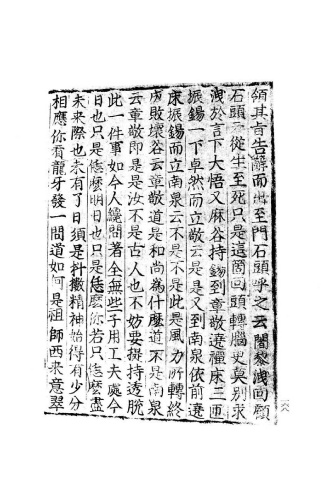 領其旨告辭而出至門石頭呼之云闍黎洩回顧
石頭云從生至死只是這箇回頭轉腦更莫別求
洩於言下大悟又麻谷持錫到章敬遶禪床三匝
振錫一下卓然而立敬云是是又到南泉依前遶
床振錫而立南泉云不是不是此是風力所轉終
成敗壞谷云章敬道是和尚為什麼道不是南泉
云章敬即是是汝不是古人也不妨要提持透脫
此一件事如今人纔問著全無些子用工夫處今
日也只是恁麼明日也只是恁麼你若只恁麼盡
未來際也未有了日須是抖擻精神始得有少分
相應你看龍牙發一問道如何是祖師西來意翠